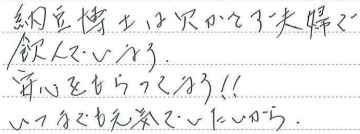 納豆博士は欠かさず夫婦で
飲んでいます。
安心をもらってます!!
いつまでも元気でいたいから。